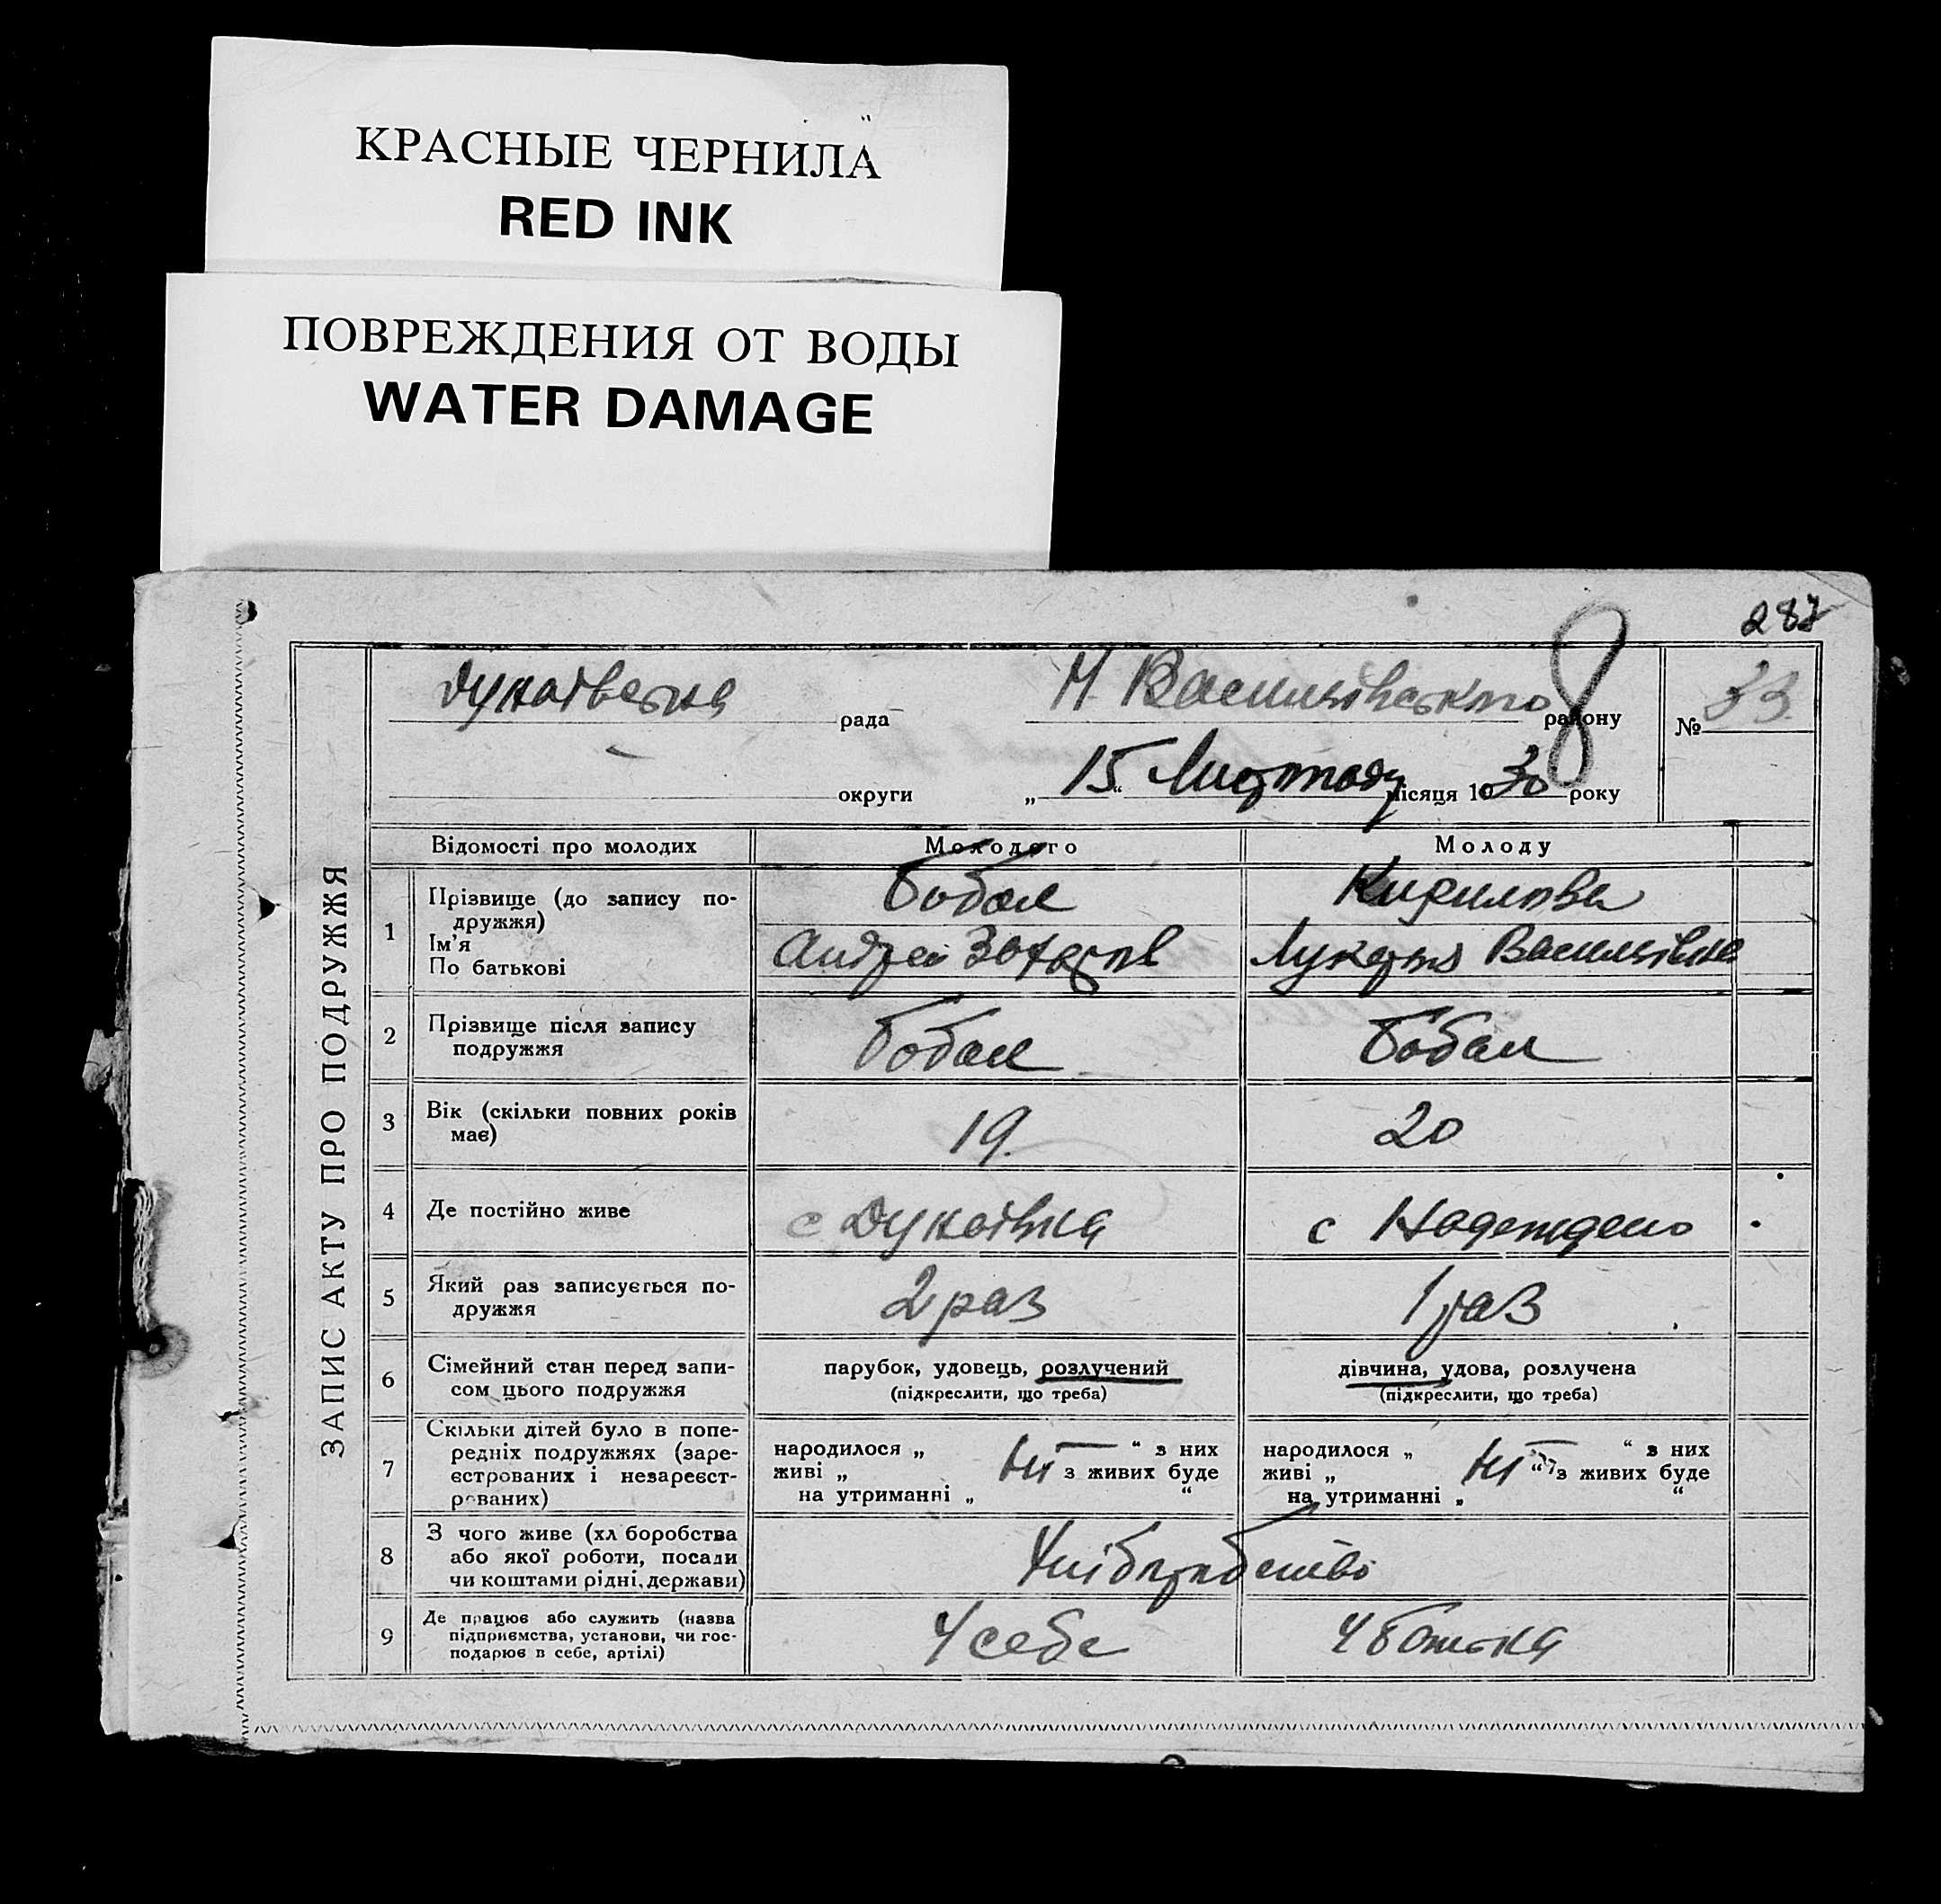 КРАСНЫЕ ЧЕРНИЛА
RED INK
ПОВРЕЖДЕНИЯ ОТ ВОДЫ
WATER DAMAGE
287
8
ЗАПИС АКТУ ПРО ПОДРУЖЖЯ
рада Н. Васильівського району № 33
округи „15“ Листопаду місяця 1930 року
Відомості про молодих Молодого Молоду
1 Прізвище (до запису по-
дружжя)
Ім'я
По батькові
Бобал Кирилова
Андрей Захаров Лукерья Васильівна
2 Прізвище після запису
подружжя
Бобал Бобал
3 Вік (скільки повних років
має)
19. 20
4 Де постійно живе с Дунаівка с Надеждено
5 Який раз записується по-
дружжя
2 раз 1 раз
6 Сімейний стан перед запи-
сом цього подружжя
парубок, удовець, розлучений дівчина, удова, розлучена
(підкреслити, що треба) (підкреслити, що треба)
7 Скільки дітей було в попе-
редніх подружжях (заре-
єстрованих і незареєст-
рованих)
народилося „ “ з них народилося „ “ з них
живі „ ні з живих буде живі „ ні “ з живих буде
на утриманні „ “ на утриманні „ “
8 З чого живе (хліборобства
або якої роботи, посади
чи коштами рідні, держави)
Хліборобство
9 Де працює або служить (назва
підприємства, установи, чи гос-
подарює в себе, артілі)
У себе У батька